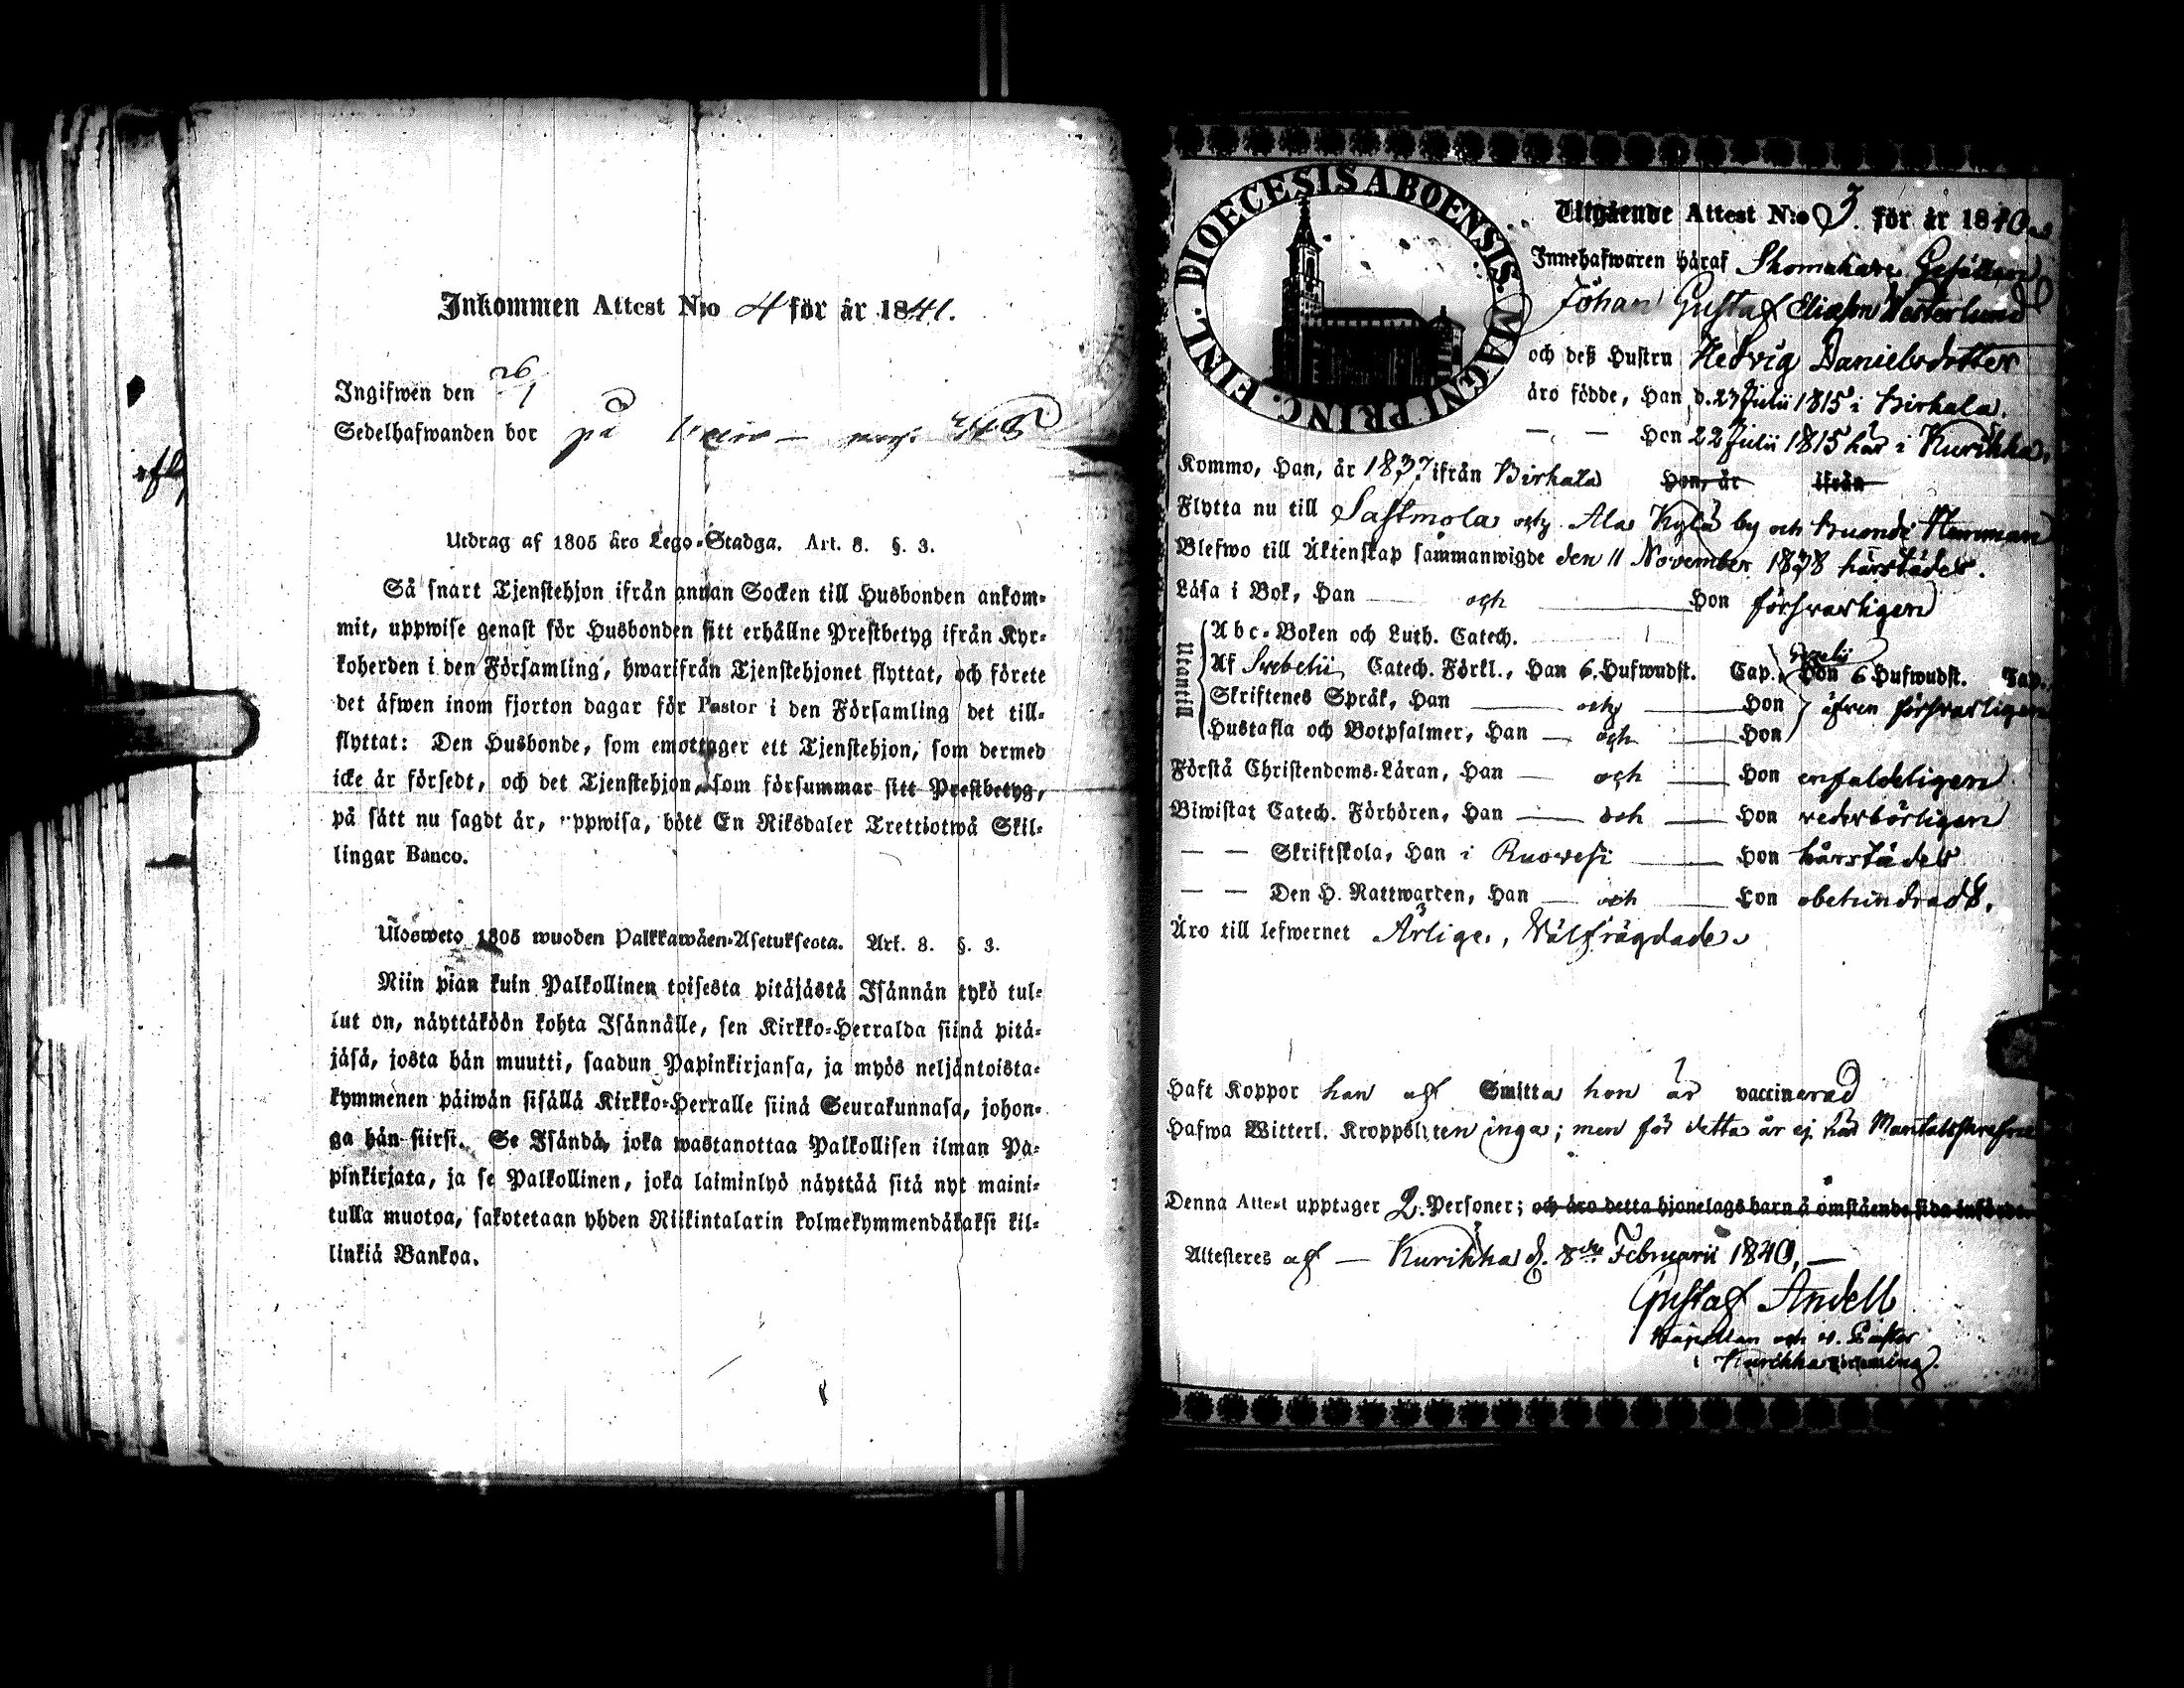 Inkommen Attest N:o 4 för år 1841.
Ingifwen den 26/1
Sedelhafwanden bor på
Utdrag af 1805 års Lego-Stadga. Art. 8. §. 3.
Så snart Tjenstehjon ifrån annan Socken till Husbonden ankom-
mit, uppwise genast för Husbonden sitt erhållne Prestbetyg ifrån Kyr-
koherden i den Församling, hwarifrån Tjenstehjonet flyttat, och förete
det äfwen inom fjorton dagar för Pastor i den Församling det till-
flyttat: Den Husbonde, som emottager ett Tjenstehjon, som dermed
icke är försedt, och det Tjenstehjon, som försummar sitt Prestbetyg,
på sätt nu sagdt är, uppwisa, böte En Riksdaler Trettiotwå Skil-
lingar Banco.
Ulosweto 1805 wuoden Palkkawäen-Asetuksesta. Art. 8. §. 3.
Niin pian kuin Palkollinen toisesta pitäjästä Isännän tykö tul-
lut on, näyttäköön kohta Isännälle, sen Kirkko-Herralda siinä pitä-
jäsä, josta hän muutti, saadun Papinkirjansa, ja myös neljäntoista-
kymmenen päiwän sisällä Kirkko-Herralle siinä Seurakunnasa, johon-
ga hän siirsi. Se Isändä, joka wastanottaa Palkollisen ilman Pa-
pinkirjata, ja se Palkollinen, joka laiminlyö näyttää sitä nyt maini-
tulla muotoa, sakotetaan yhden Riikintalarin kolmekymmendäkaksi kil-
linkiä Bankoa.
DIOECESIS ABOENSIS. MAGNI PRINC. FINL.
Utgående Attest N:o 3. för år 1840
Innehafwaren häraf Skomakare Gesällen
Johan Gustaf Eliasson Westerlund
och deß Hustru Hedvig Danielsdotter
äro födde, Han d. 27 Julii 1815 i Birkala.
— — Hon 22 Julii 1815 här i Kurikka.
Kommo, Han, år 1837 ifrån Birkala Hon, år ifrån
Flytta nu till Sastmola och Ala Kylä by och Buonde Hamman
Blefwo till Äktenskap sammanwigde den 11 November 1838 härstädes.
Läsa i Bok, Han — och — Hon försvarligen
Utantill
Abc-Boken och Luth. Catech.
Af Svebelii Catech. Förkl., Han 6. Hufwudst. Cap., Hon 6 Hufwudst. Cap.
Skriftenes Språk, Han — och — Hon äfven försvarligen
Hustafla och Botpsalmer, Han — och — Hon
Förstå Christendoms-Läran, Han — och — Hon enfaldeligen
Biwistat Catech. Förhören, Han — och — Hon vederbörligen
— — Skriftskola, Han i Ruovesi — Hon härstädes
— — Den H. Nattwarden, Han — och — Hon obehindradt.
Äro till lefwernet Ärlige, Välfrägdade
Haft Koppor han af Smitta hon är vaccinerad
Hafwa Witterl. Kroppslyten inga; men för detta år ej här Mantalsskrefne
Denna Attest upptager 2. Personer; och äro detta hjonelags barn å omstående sida införde.
Attesteres af — Kurikka d. 8de Februarii 1840. —
Gustaf Andell
Kapellan och v. Pastor
i Kurikka